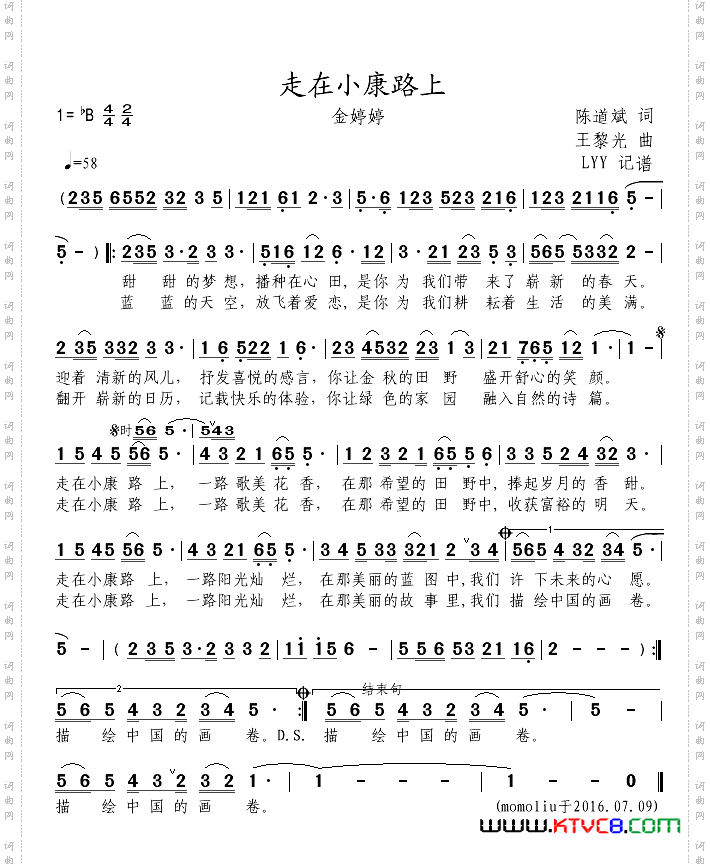 走在小康路上
1=♭B 4/4 2/4 金婷婷 陈道斌 词
王黎光 曲
♩=58 LYY 记谱
(235 6552 32 3 5 | 121 61 2·3 | 5·6 123 523 216 | 123 2116 5 - |
5 - ) ‖: 235 3·2 3 3· | 516 12 6·12 | 3·21 23 5 3 | 565 5332 2 - |
甜 甜的梦想,播种在心田,是你为我们带来了崭新的春天。
蓝 蓝的天空,放飞着爱恋,是你为我们耕耘着生活的美满。
2 35 332 3 3· | 1 6 522 1 6· | 23 4532 23 1 3 | 21 765 12 1· | 1 - |
迎着清新的风儿,抒发喜悦的感言,你让金秋的田野盛开舒心的笑颜。
翻开崭新的日历,记载快乐的体验,你让绿色的家园融入自然的诗篇。
𝄋时 56 5· | 543
1 5 4 5 56 5· | 4 3 2 1 65 5· | 1 2 3 2 1 65 5 6 | 3 3 5 2 4 32 3· |
走在小康路上,一路歌美花香,在那希望的田野中,捧起岁月的香甜。
走在小康路上,一路歌美花香,在那希望的田野中,收获富裕的明天。
1 5 45 56 5· | 4 3 21 65 5· | 3 4 5 3 321 2 3 4 | 565 4 32 34 5· |
走在小康路上,一路阳光灿烂,在那美丽的蓝图中,我们许下未来的心愿。
走在小康路上,一路阳光灿烂,在那美丽的故事里,我们描绘中国的画卷。
5 - (2 3 5 3·2 3 3 2 | 1 1 1 5 6 - | 5 5 6 5 3 21 1 6 | 2 - - - ) :‖
2 结束句
5 6 5 4 3 2 3 4 5· :‖ 5 6 5 4 3 2 3 4 5· | 5 - |
描 绘中国的画 卷。D.S. 描 绘中国的画 卷。
5 6 5 4 3 2 3 2 1· | 1 - - - | 1 - - 0 ‖
描 绘中国的画 卷。
(momoliu于2016.07.09)
www.KTVC8.com
词曲网